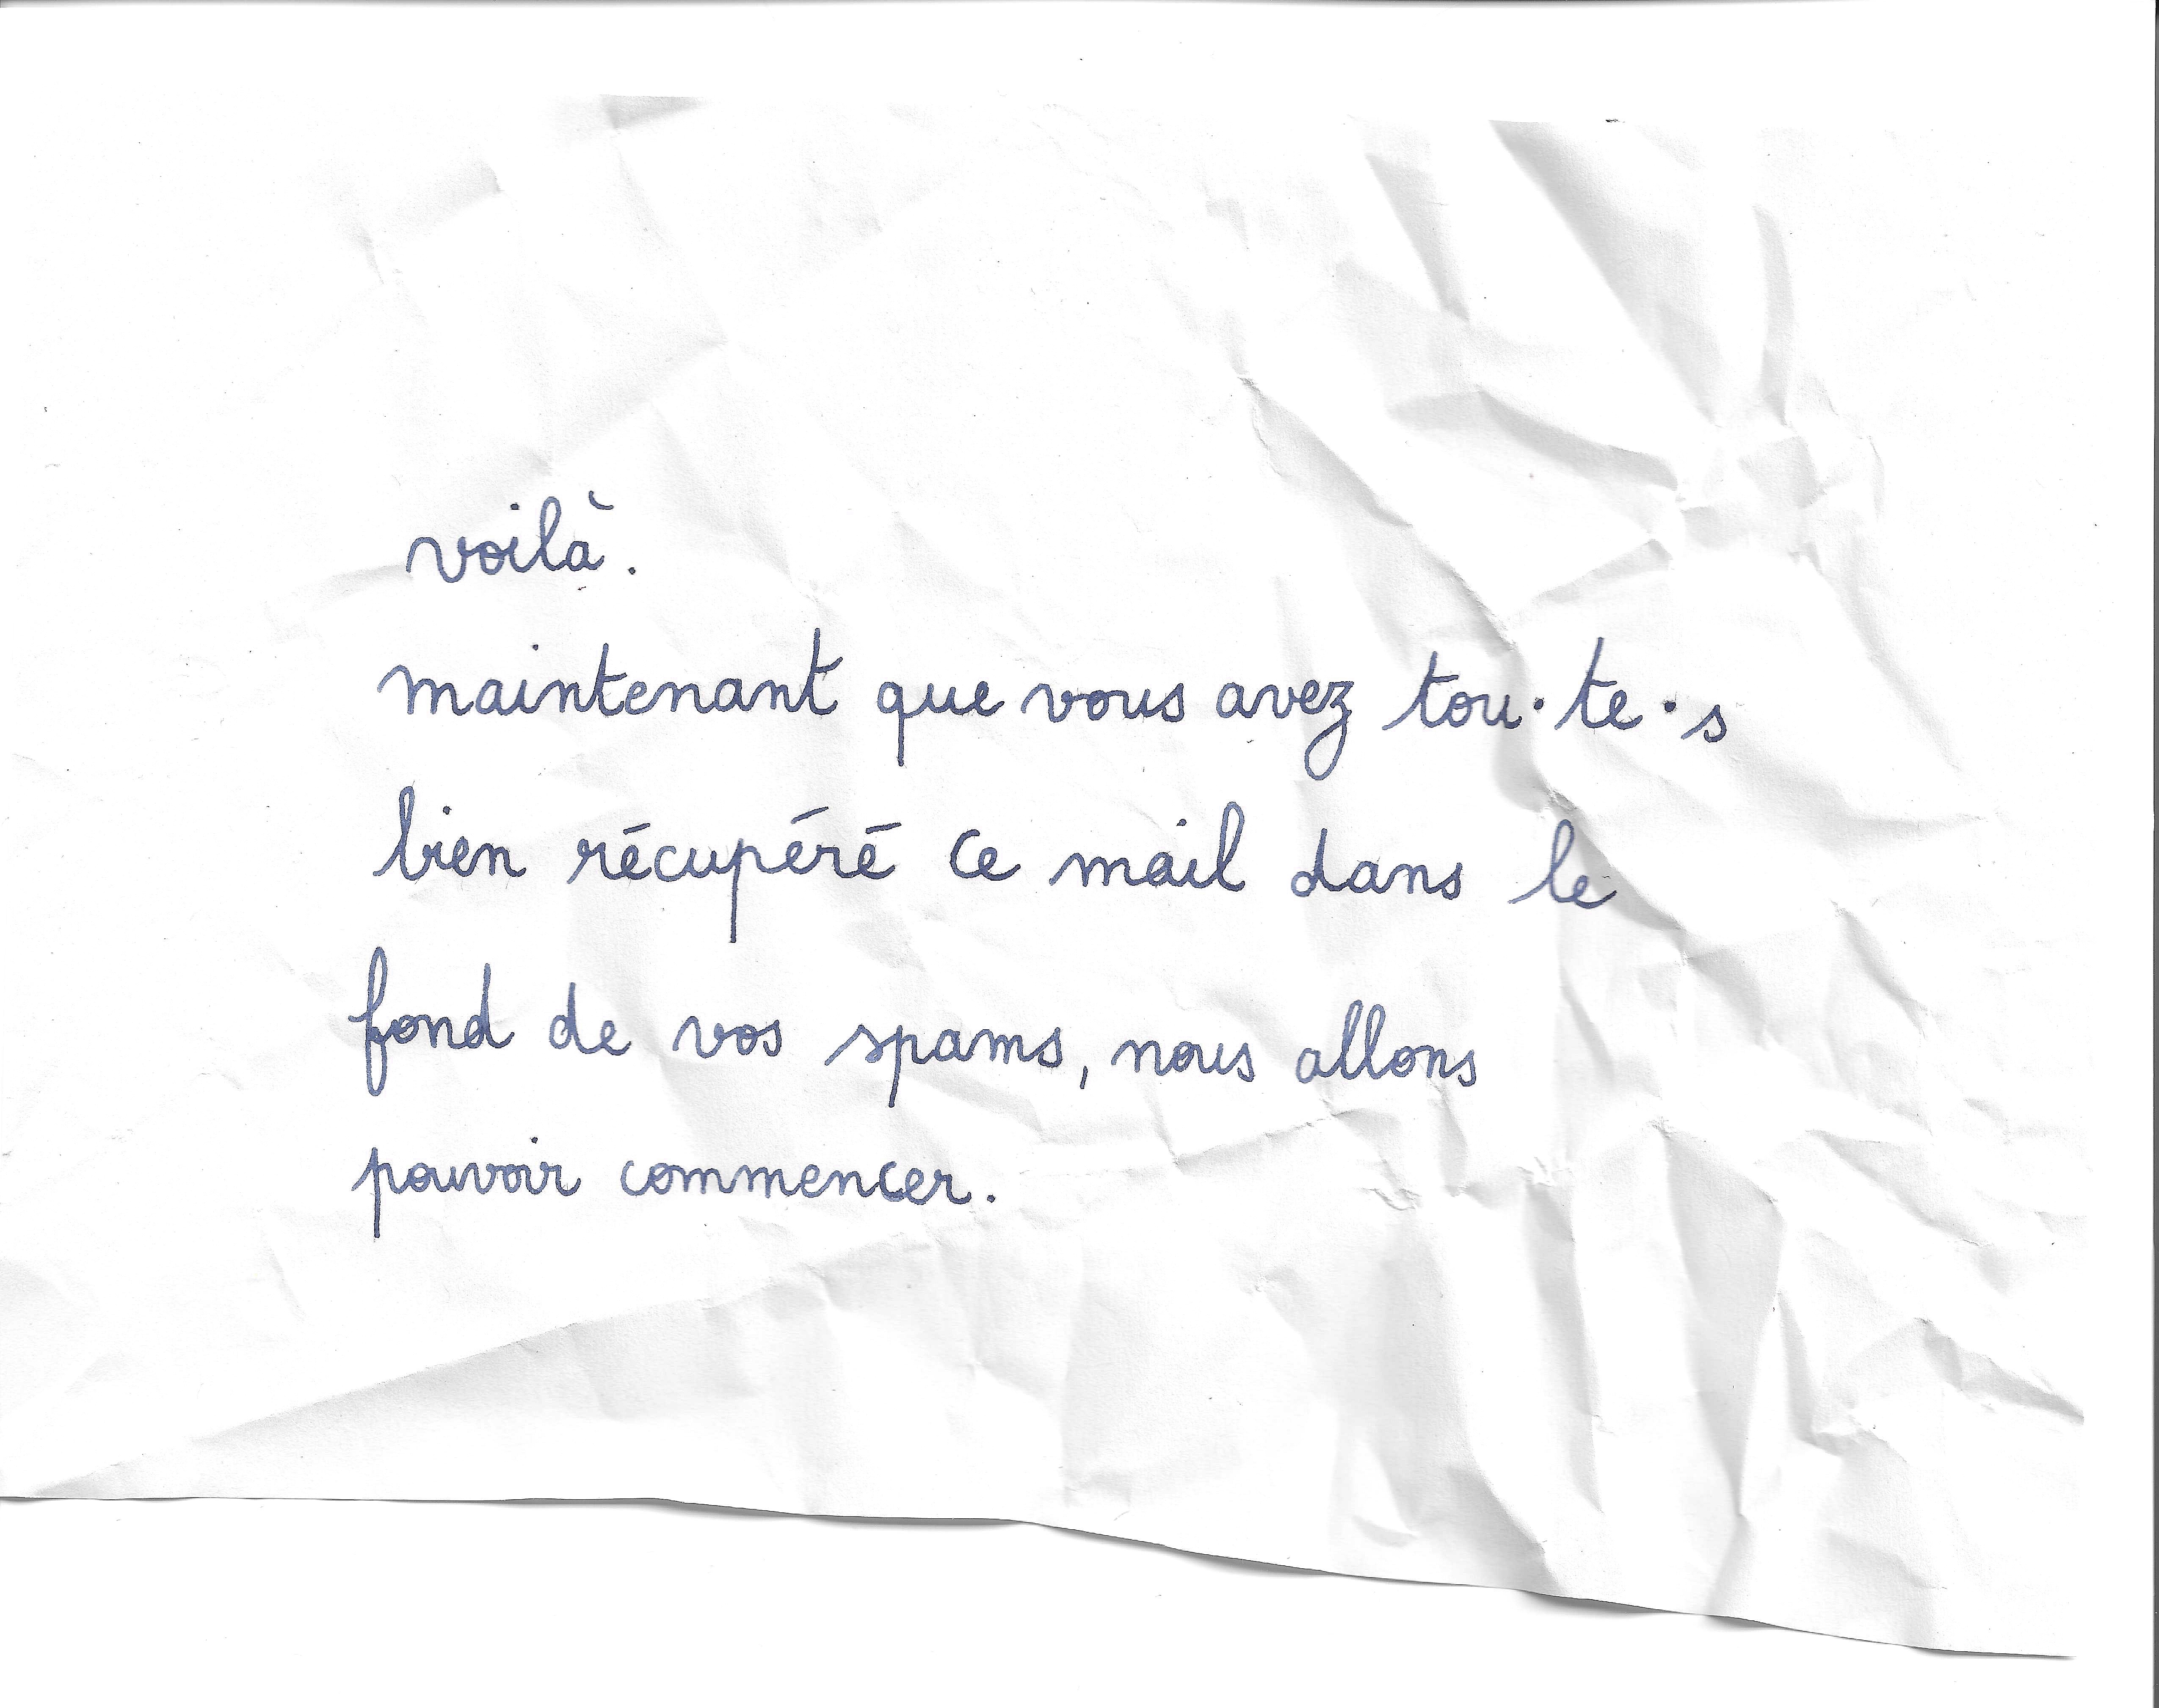 voilà.
maintenant que vous avez tou·te·s
bien récupéré ce mail dans le
fond de vos spams, nous allons
pouvoir commencer.